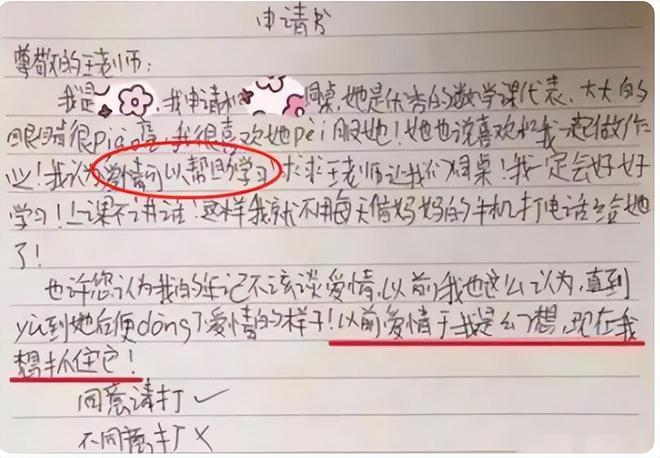 申请书
尊敬的王老师:
我是 ,我申请和 同桌,她是优秀的数学课代表、大大的
眼睛很piào亮,我很喜欢她pèi服她!她也说喜欢和我一起做作
业!我认为爱情可以帮助学习 求求王老师让我们同桌!我一定会好好
学习!上课不讲话!这样我就不用每天借妈妈的手机打电话给她
了!
也许您认为我的年记不该谈爱情,以前我也这么认为,直到
yù到她后便dǒng了爱情的样子!以前爱情于我是幻想,现在我
想抓住它!
同意请打✓
不同意打×